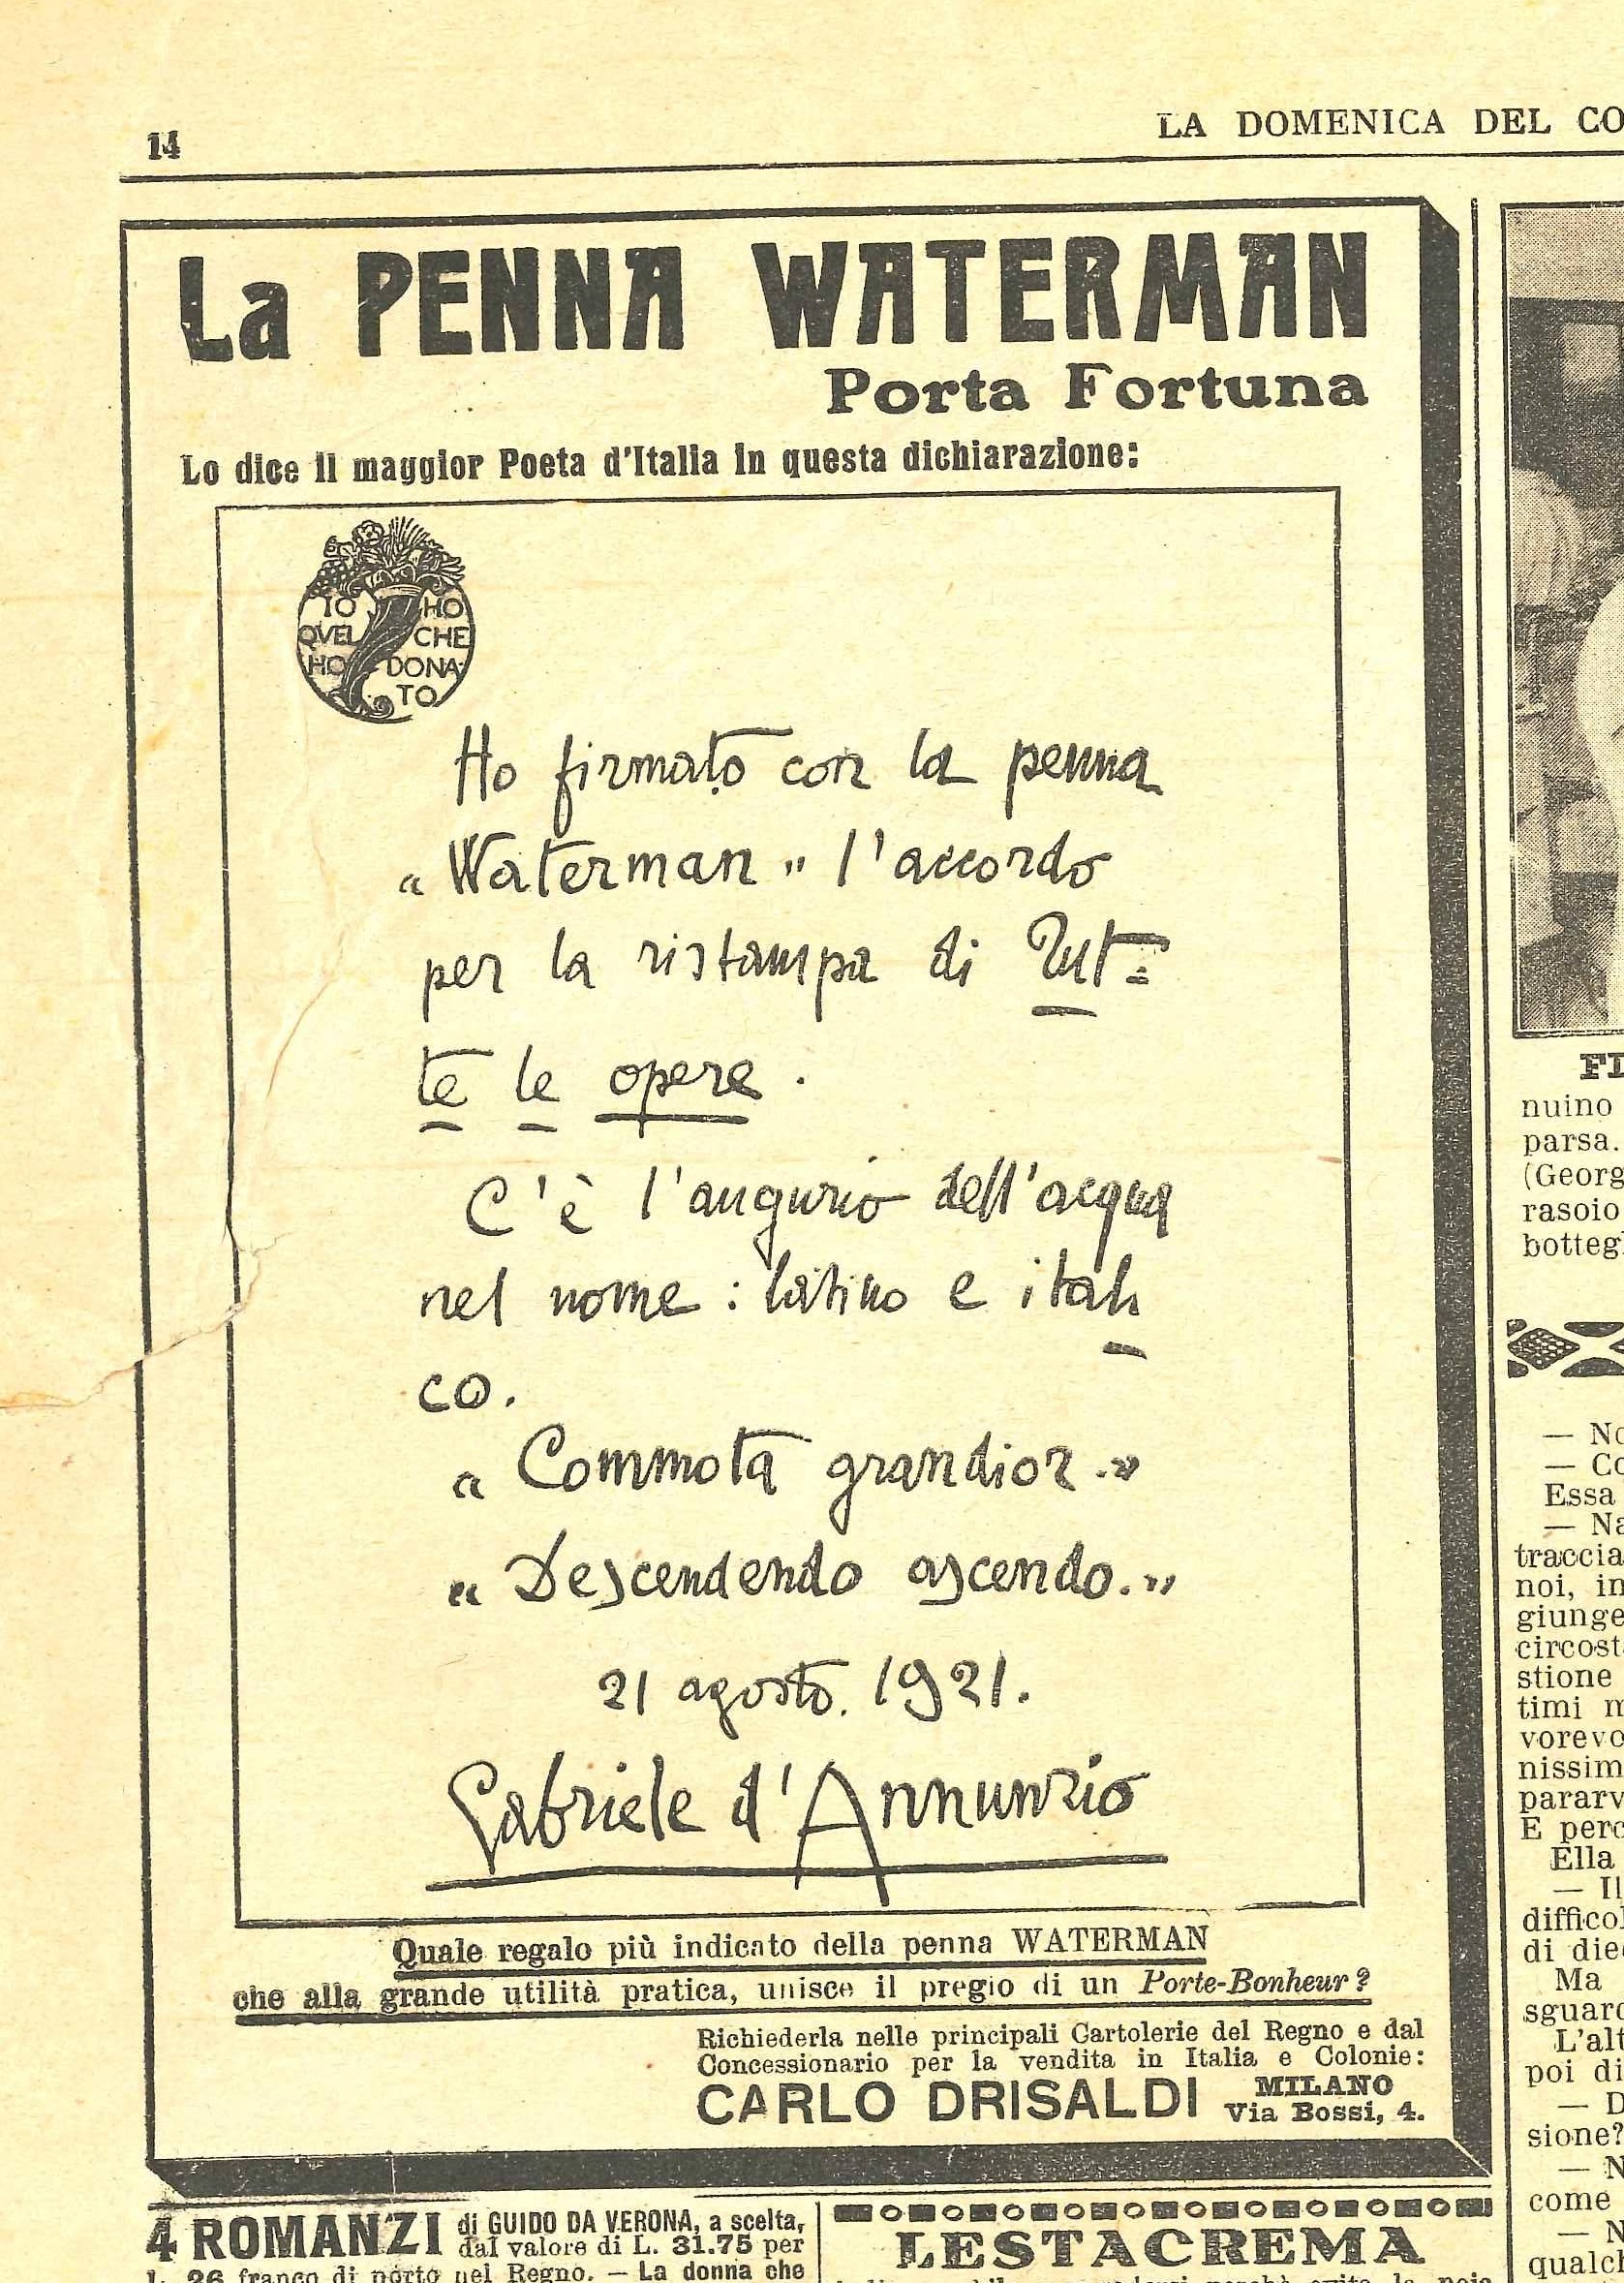 14
LA DOMENICA DEL CO
La PENNA WATERMAN
Porta Fortuna
Lo dice il maggior Poeta d'Italia in questa dichiarazione:
IO HO
QVEL CHE
HO DONA-
TO
Ho firmato con la penna
« Waterman » l'accordo
per la ristampa di Tut=
te le opere.
C'è l'augurio dell'acqua
nel nome: latino e itali
co.
« Commota grandior.»
« Descendendo ascendo.»
21 agosto. 1921.
Gabriele d'Annunzio
Quale regalo più indicato della penna WATERMAN
che alla grande utilità pratica, unisce il pregio di un Porte-Bonheur?
Richiederla nelle principali Cartolerie del Regno e dal
Concessionario per la vendita in Italia e Colonie:
CARLO DRISALDI MILANO
Via Bossi, 4.
4 ROMANZI di GUIDO DA VERONA, a scelta,
dal valore di L. 31.75 per
L. 26 franco di porto nel Regno. — La donna che
LESTACREMA
FI
nuino
parsa.
(Georg
rasoio
botteg
— No
— Co
Essa
— Na
traccia
noi, in
giunge
circost
stione
timi m
vorevo
nissim
pararv
E perc
Ella
— Il
difficol
di die
Ma
sguard
L'alt
poi di
— D
sione?
— N
come
— N
qualch